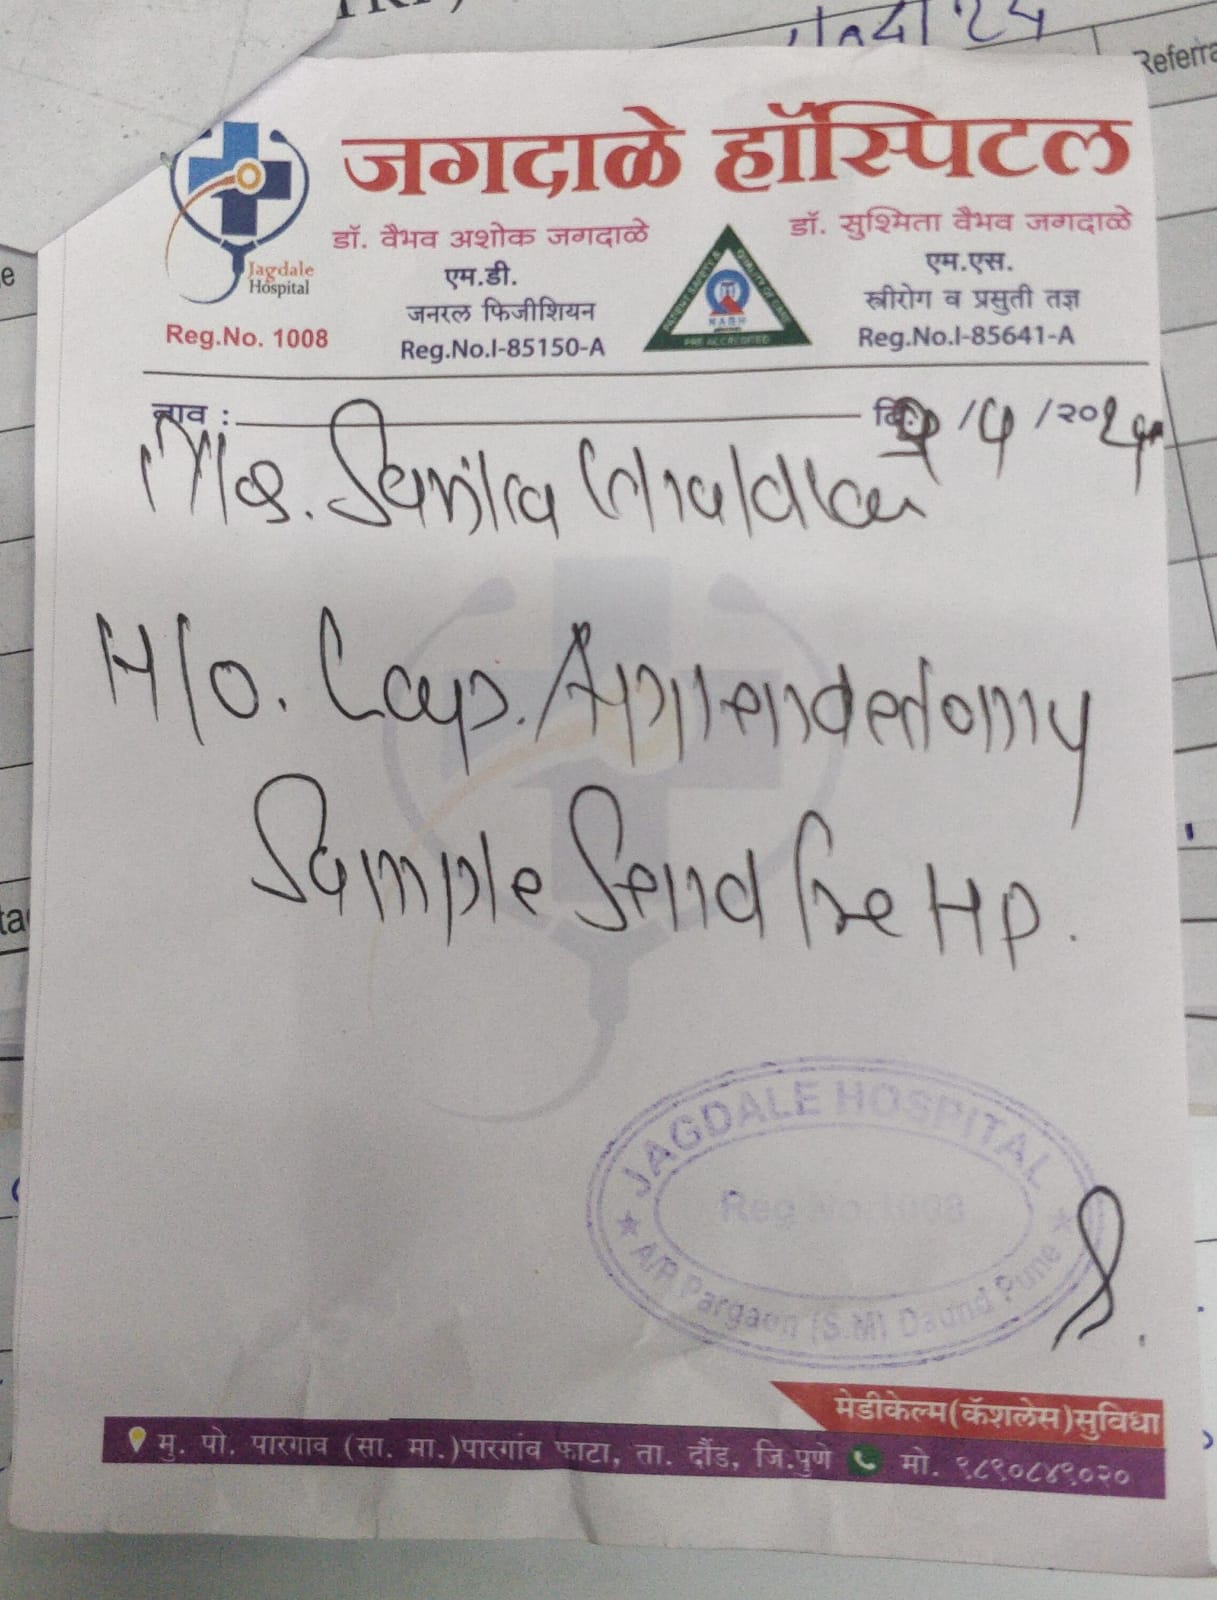 Referra
जगदाळे हॉस्पिटल
Jagdale
Hospital
Reg.No. 1008
डॉ. वैभव अशोक जगदाळे
एम.डी.
जनरल फिजीशियन
Reg.No.I-85150-A
NABH
PRE ACCREDITED
डॉ. सुश्मिता वैभव जगदाळे
एम.एस.
स्त्रीरोग व प्रसुती तज्ञ
Reg.No.I-85641-A
नाव :
/२०
H/o. Lap. Appendectomy
Sample Send for HP.
JAGDALE HOSPITAL
Reg No 1008
A/P Pargaon (S.M) Daund Pune
मेडीकेल्म(कॅशलेस)सुविधा
मु. पो. पारगाव (सा. मा.)पारगांव फाटा, ता. दौंड, जि.पुणे मो. ९८९०८४९०२०